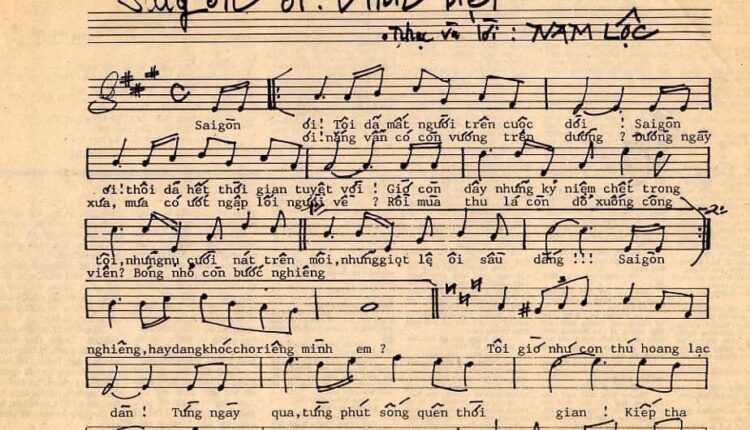 Saigon ơi! Vĩnh biệt
Nhạc và lời: NAM LỘC
Saigon ơi! Tôi dã mất người trên cuộc dời ! Saigon
ơi!nắng vẫn có còn vương trên dường ? Dường ngày
ơi!thôi dã hết thời gian tuyệt vời ! Giờ còn dây những kỷ niệm chết trong
xưa, mưa có ướt ngập lối người về ? Rồi mùa thu lá còn dổ xuống công
tôi,nhưngnụ cười nát trên môi,nhưnggiọt lệ ôi sầu dắng !!! Saigon
viên? Bóng nhỏ còn bước nghiêng
nghiêng,haydangkhócchoriêng mình em ? Tôi giờ như con thú hoang lạc
dàn ! Từng ngày qua,từng phút sống quên thời gian ! Kiếp tha